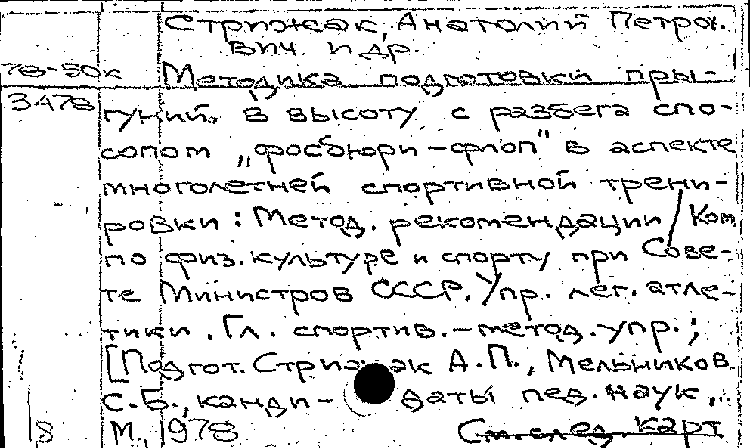 Стрижак, Анатолий Петро-
вич и др.
78-50к Методика подготовки пры-
3478 гуний в высоту с разбега спо-
собом „фосбюри-флоп" в аспекте
многолетней спортивной трени-
ровки : Метод. рекомендации / Ком
по физ. культуре и спорту при Сове-
те Министров СССР. Упр. лег. атле-
тики. Гл. спортив.-метод. упр.;
[Подгот. Стрижак А.П., Мельников
С.Б., канди- даты пед. наук.
М., 1978 См. след. карт